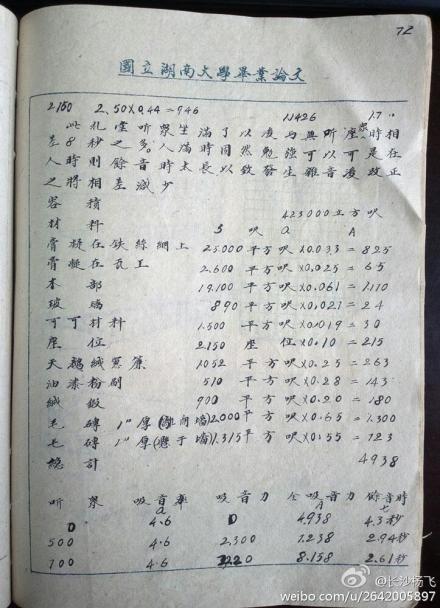 72
國立湖南大學畢業論文
2150 2.50×0.44=946 11426 1.7"
此礼堂听衆坐滿了以後与無听衆座時相
差8秒之多。人滿時固然勉強可以可是在
人時則餘音時太長以致發生雜音後改正
之將相差減少
容積 423000立方呎
材料 S 呎 a A
膏凝在铁絲網上 25.000平方呎×0.033=825
膏凝在瓦工 2.600平方呎×0.025=65
本部 19.100平方呎×0.061=1.110
玻璃 890平方呎×0.027=24
可可材料 1.500平方呎×0.019=30
座位 2.150座位×0.10=215
天鵝絨窓簾 1052平方呎×0.25=263
油漆粉刷 510平方呎×0.28=143
絨緞 900平方呎×0.20=180
毛磚1"厚(離向墙)2.000平方呎×0.65=1.300
毛磚1"厚(懸于墙)1.315平方呎×0.55=723
總計 4938
听衆 吸音率a 吸音力 仝吸音力A 餘音時t
0 4.6 0 4.938 4.3秒
500 4.6 2,300 7.238 2.94秒
700 4.6 3220 8.158 2.61秒
@长沙杨飞
weibo.com/u/2642005897